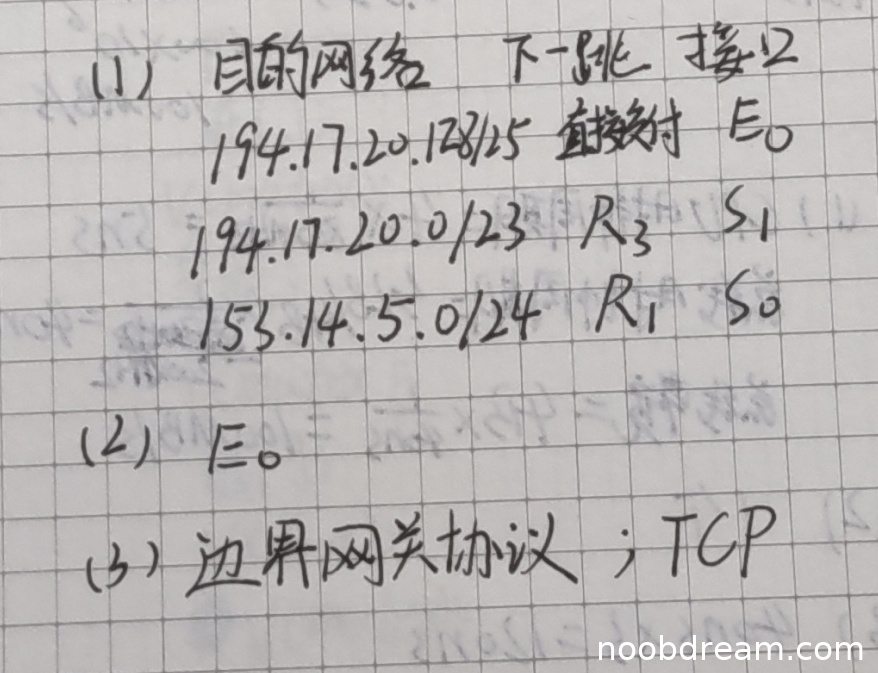 (1) 目的网络 下一跳 接口
194.17.20.128/25 直接交付 E0
194.17.20.0/23 R3 S1
153.14.5.0/24 R1 S0
(2) E0
(3) 边界网关协议；TCP
noobdream.com